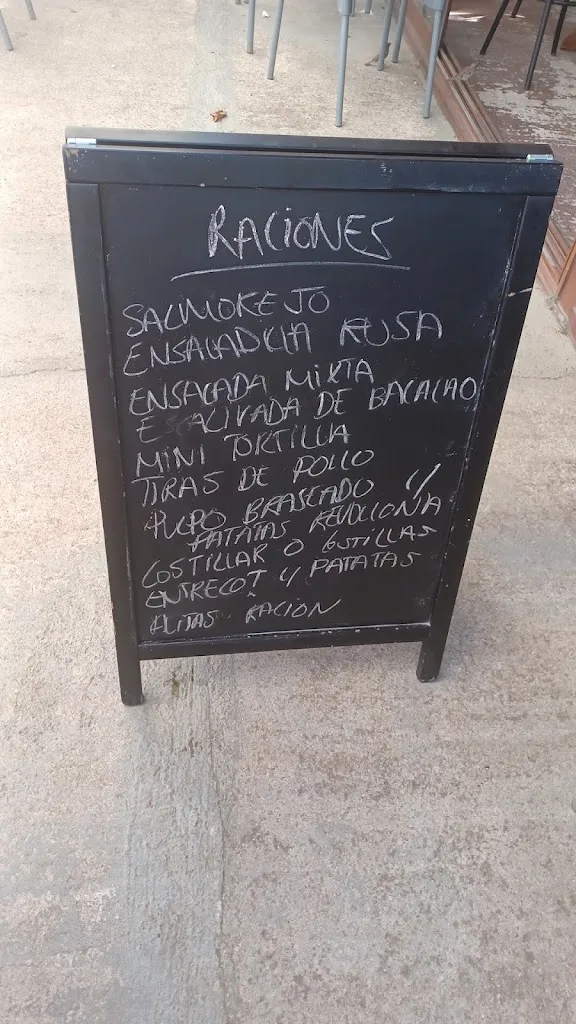 RACIONES
SALMOREJO
ENSALADILLA RUSA
ENSALADA MIXTA
ESCALIVADA DE BACALAO
MINI TORTILLA
TIRAS DE POLLO
PULPO BRASEADO Y
PATATAS REVOLCONA
COSTILLAR O COSTILLAS
ENTRECOT Y PATATAS
ALITAS RACION